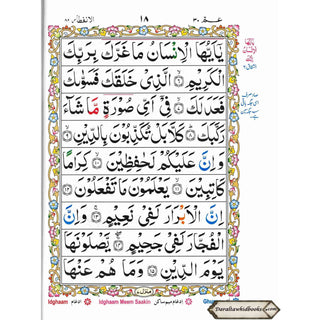 عـمّ ٣٠
١٨
الانفطار ٨٢
يٰۤاَيُّهَا الْاِنْسَانُ مَا غَرَّكَ بِرَبِّكَ
الْكَرِيْمِ ۙ﴿۶﴾ الَّذِيْ خَلَقَكَ فَسَوّٰىكَ
فَعَدَلَكَ ۙ﴿۷﴾ فِيْۤ اَيِّ صُوْرَةٍ مَّا شَآءَ
رَكَّبَكَ ؕ﴿۸﴾ كَلَّا بَلْ تُكَذِّبُوْنَ بِالدِّيْنِ ۙ﴿۹﴾
وَاِنَّ عَلَيْكُمْ لَحٰفِظِيْنَ ۙ﴿۱۰﴾ كِرَامًا
كَاتِبِيْنَ ۙ﴿۱۱﴾ يَعْلَمُوْنَ مَا تَفْعَلُوْنَ ﴿۱۲﴾
اِنَّ الْاَبْرَارَ لَفِيْ نَعِيْمٍ ۚ﴿۱۳﴾ وَاِنَّ
الْفُجَّارَ لَفِيْ جَحِيْمٍ ۚۖ﴿۱۴﴾ يَّصْلَوْنَهَا
يَوْمَ الدِّيْنِ ﴿۱۵﴾ وَمَا هُمْ عَنْهَا
Idghaam ادغام
Idghaam Meem Saakin ادغام میم ساکن
Darultawhidbooks.com